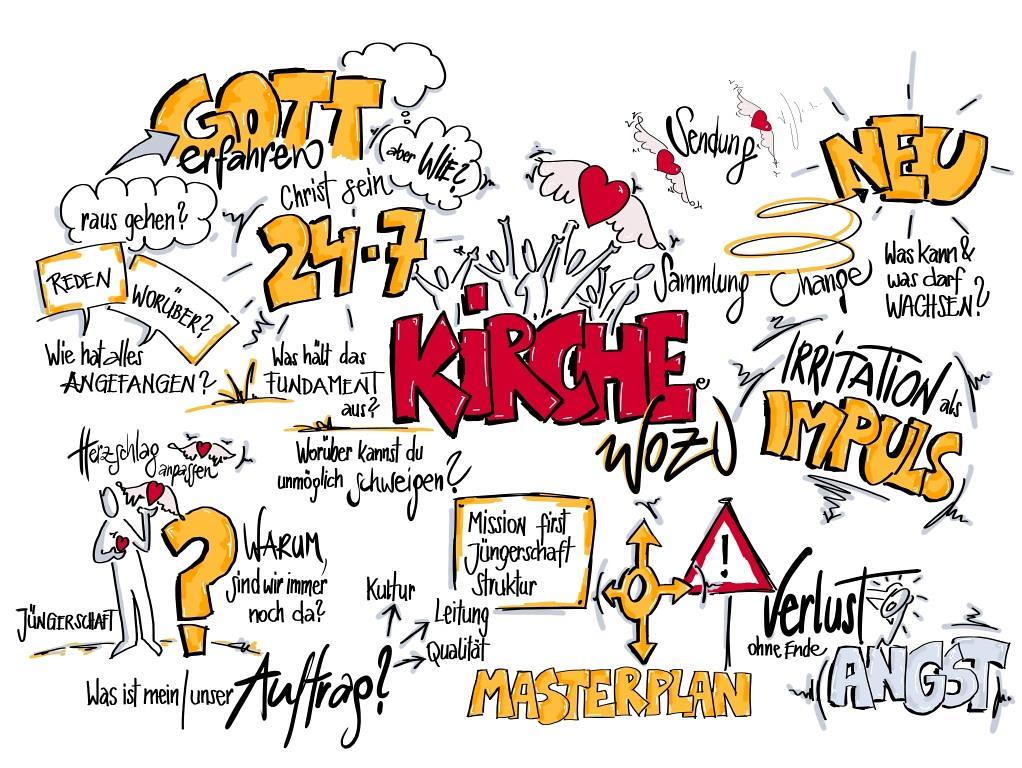 GOTT
erfahren
aber WIE?
Christ sein
24-7
raus gehen?
REDEN
WORÜBER?
Wie hat alles
ANGEFANGEN?
Was hält das
FUNDAMENT
aus?
Herzschlag
anpassen
Worüber kannst du
unmöglich schweigen?
KiRCHE
WOZU
Sendung
Sammlung
Change
NEU
Was kann &
was darf
WACHSEN?
IRRITATION als
IMPULS
JÜNGERSCHAFT
?
WARUM,
sind wir immer
noch da?
Was ist mein/unser
Auftrag?
Kultur
Leitung
Qualität
Mission first
Jüngerschaft
Struktur
MASTERPLAN
!
Verlust
ohne Ende
ANGST